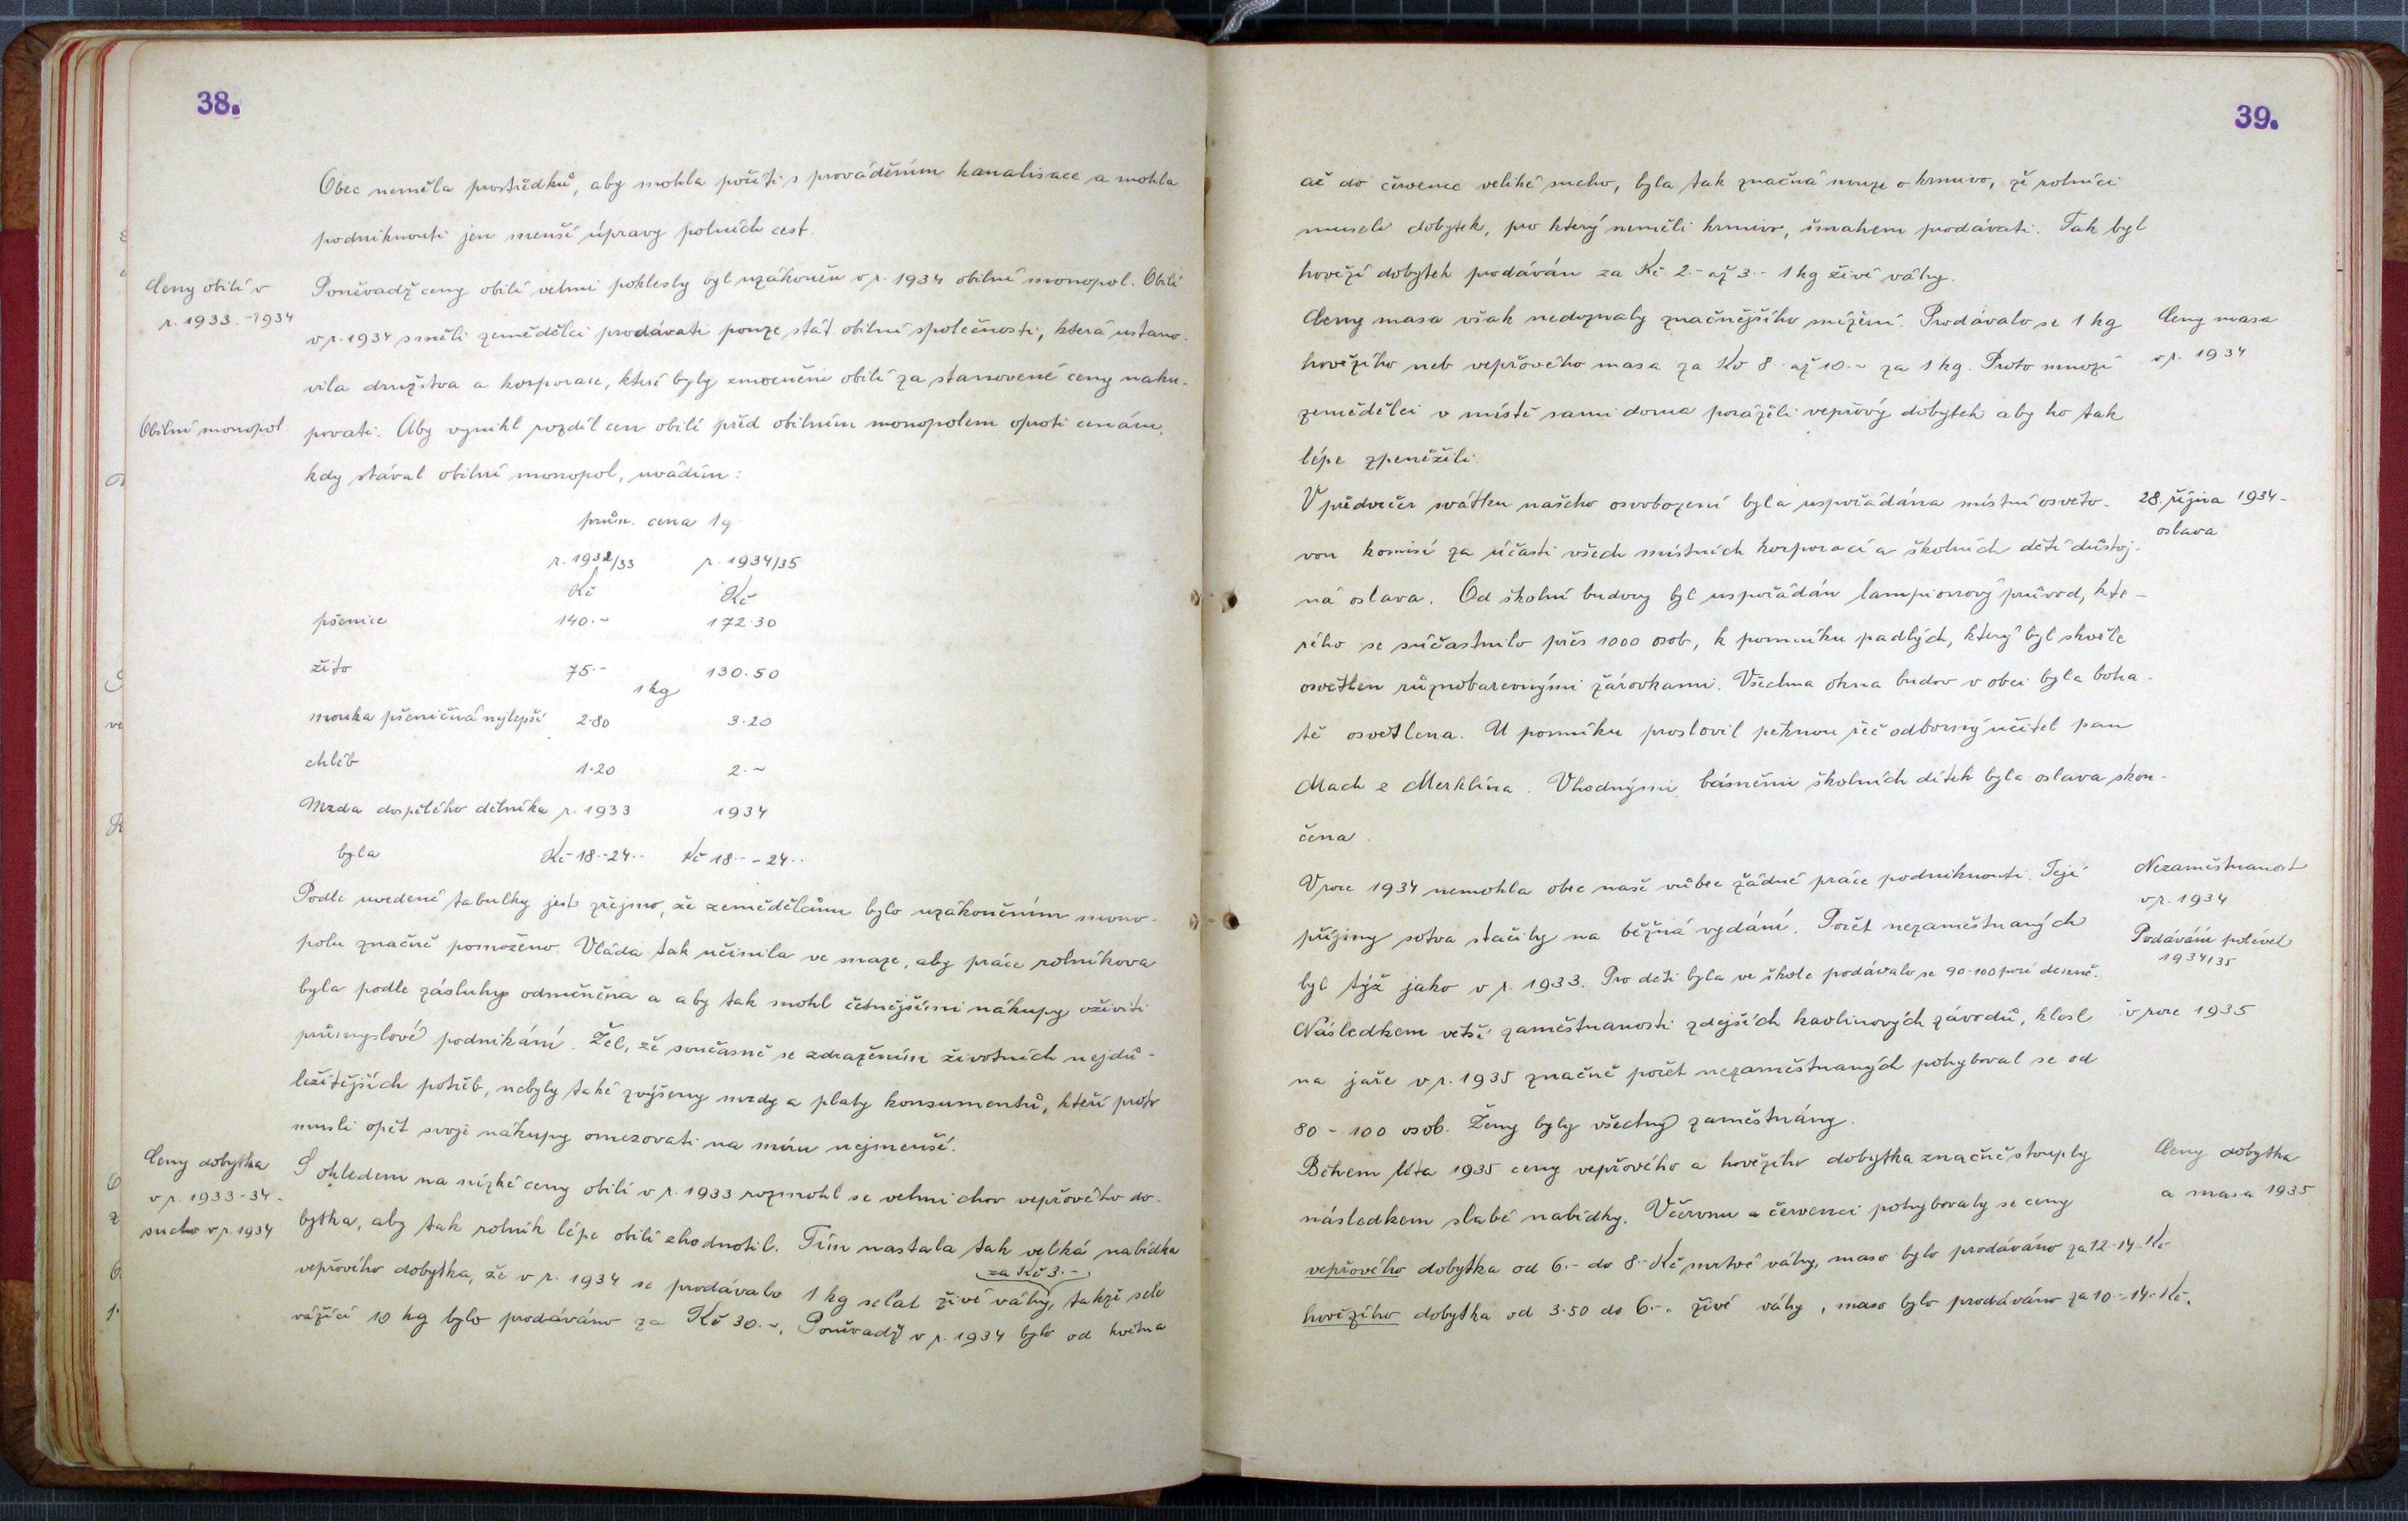 38.
Obec neměla prostředků, aby mohla počíti s prováděním kanalisace a mohla
podniknouti jen menší úpravy polních cest.
Ceny obilí v
r. 1933.-1934
Poněvadž ceny obilí velmi poklesly byl uzákoněn v r. 1934 obilní monopol. Obilí
v r. 1934 směli zemědělci prodávati pouze stát. obilní společnosti, která ustano-
vila družstva a korporace, které byly zmocněni obilí za stanovené ceny naku-
Obilní monopol.
povati. Aby vynikl rozdíl cen obilí před obilním monopolem oproti cenám,
kdy stával obilní monopol, uvádím:
prům. cena 1q
r. 1932/33 r. 1934/35
Kč Kč
pšenice 140.- 172.30
žito 75.- 130.50
1 kg
mouka pšeničná nejlepší 2.80 3.20
chléb 1.20 2.-
Mzda dospělého dělníka r. 1933 1934
byla Kč 18.-24.- Kč 18.- - 24.-
Podle uvedené tabulky jest zřejmo, že zemědělcům bylo uzákoněním mono-
polu značně pomoženo. Vláda tak učinila ve snaze, aby práce rolníkova
byla podle zásluhy odměněna a aby tak mohl četnějšími nákupy oživiti
průmyslové podnikání. Žel, že současně se zdražením životních nejdů-
ležitějších potřeb, nebyly také zvýšeny mzdy a platy konsumentů, kteří proto
musli opět svoje nákupy omezovati na míru nejmenší.
Ceny dobytka
v r. 1933-34-
sucho v r. 1934
S ohledem na nízké ceny obilí v r. 1933 rozmohl se velmi chov vepřového do-
bytka, aby tak rolník lépe obilí zhodnotil. Tím nastala tak velká nabídka
za Kč 3.-
vepřového dobytka, že v r. 1934 se prodávalo 1 kg selat živé váhy, takže sele
vážící 10 kg bylo prodáváno za Kč 30.-. Poněvadž v r. 1934 bylo od května
39.
až do července veliké sucho, byla tak značná nouze o krmivo, že rolníci
museli dobytek, pro který neměli krmivo, šmahem prodávati. Tak byl
hovězí dobytek prodáván za Kč 2.- až 3.- 1 kg živé váhy.
Ceny masa však nedoznaly značnějšího snížení. Prodávalo se 1 kg
hovězího neb vepřového masa za Kč 8.- až 10.- za 1 kg. Proto mnozí
Ceny masa
v r. 1934
zemědělci v místě sami doma poráželi vepřový dobytek aby ho tak
lépe zpeněžili.
V předvečer svátku našeho osvobození byla uspořádána místní osvěto-
vou komisí za účasti všech místních korporací a školních dětí důstoj-
28. října 1934-
oslava
ná oslava. Od školní budovy byl uspořádán lampionový průvod, kte-
rého se súčastnilo přes 1000 osob, k pomníku padlých, který byl skvěle
osvětlen různobarevnými žárovkami. Všechna okna budov v obci byla boha-
tě osvětlena. U pomníku proslovil pěknou řeč odborný učitel pan
Mach z Merklína. Vhodnými básněmi školních dítek byla oslava skon-
čena.
V roce 1934 nemohla obec naše vůbec žádné práce podniknouti. Její
příjmy sotva stačily na běžná vydání. Počet nezaměstnaných
byl týž jako v r. 1933. Pro děti byla ve škole podávalo se 90-100 porcí denně.
Nezaměstnanost
v r. 1934
Podávání polévek
1934/35
Následkem větší zaměstnanosti zdejších kaolinových závodů, klesl
v roce 1935
na jaře v r. 1935 značně počet nezaměstnaných pohyboval se od
80 - 100 osob. Ženy byly všechny zaměstnány.
Během léta 1935 ceny vepřového a hovězího dobytka značně stouply
následkem slabé nabídky. V červnu a červenci pohybovaly se ceny
Ceny dobytka
a masa 1935
vepřového dobytka od 6.- do 8.- Kč mrtvé váhy, maso bylo prodáváno za 12-14.-Kč
hovězího dobytka od 3.50 do 6.-. živé váhy, maso bylo prodáváno za 10.-14.-Kč.